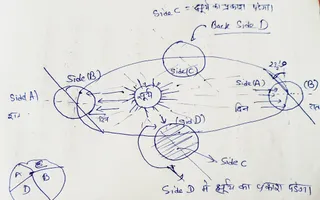 Side C = सूर्य का प्रकाश पड़ेगा।
Back Side D
Side (C)
Side (B)
Side A)
सूर्य
Side (A)
(B)
दिन
दिन
(Side D)
Side C
A
B
D
Side D में सूर्य का प्रकाश पड़ेगा।